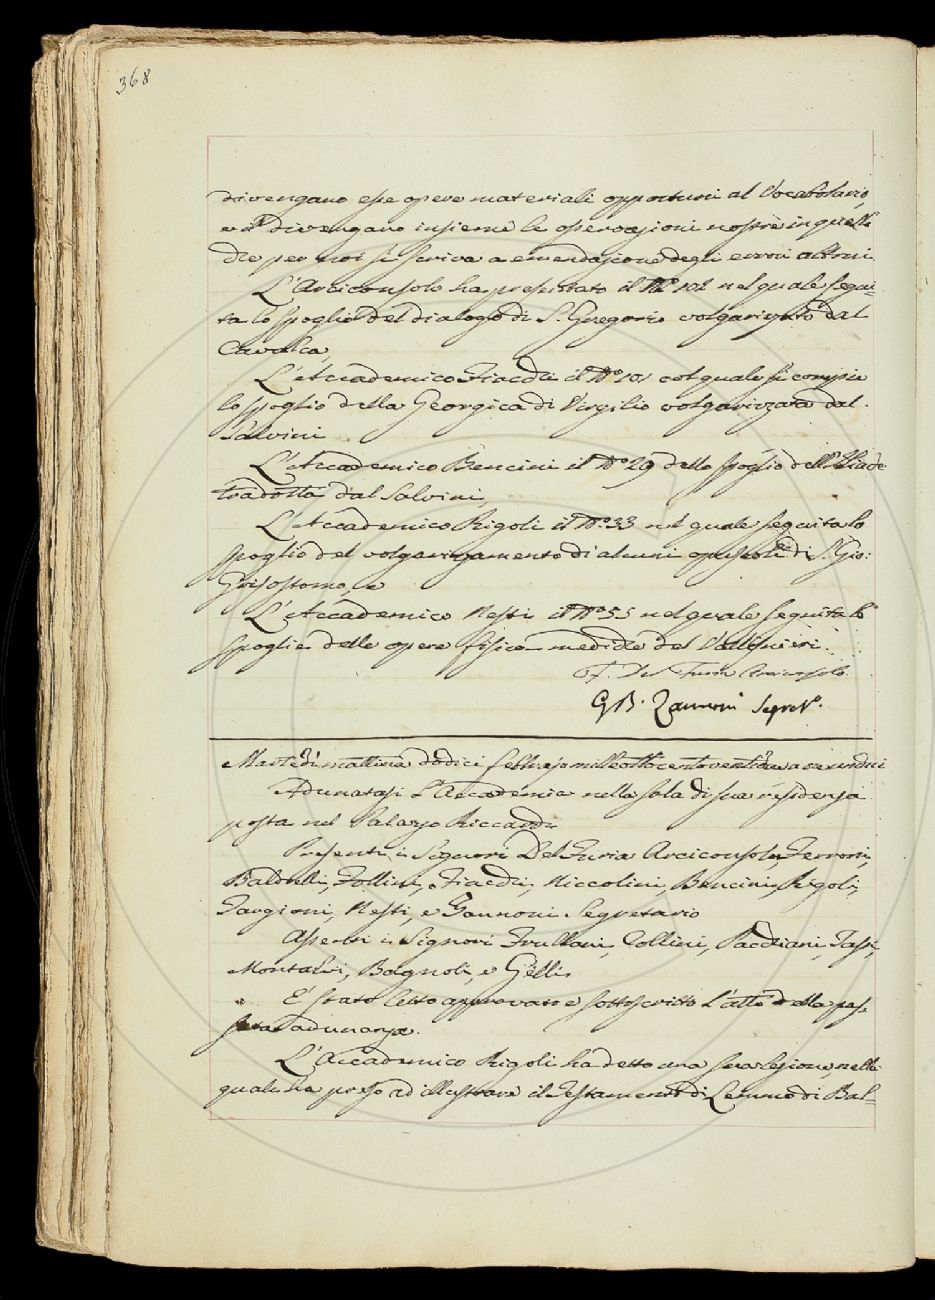 368
divengano esse opere materiali opportuni al Vocabolario,
e divengano insieme le osservazioni nostre in quelle
che per noi si scriva a emendazione degli errori altrui.
L'Arciconsolo ha presentato il N.º 102 nel quale segui-
ta lo spoglio del dialogo di S. Gregorio volgarizzato dal
Cavalca,
L'Accademico Fiacchi il N.º 101 col quale si compie
lo spoglio della Georgica di Virgilio volgarizzata dal
Salvini
L'Accademico Bencini il N.º 29 dello spoglio dell'Iliade
tradotta dal Salvini,
L'Accademico Rigoli il N.º 33 nel quale seguita lo
spoglio del volgarizzamento di alcuni opuscoli di S. Gio:
Grisostomo, e
L'Accademico Nesti il N.º 55 nel quale seguita lo
spoglio delle opere fisico-mediche del Vallisnieri.
F. Del Furia Arciconsolo
G B. Zannoni Segret.º
Martedì mattina dodici febbrajo milleottocentoventi a ore undici
Adunatasi l'Accademia nella sala di sua residenza
posta nel Palazzo Riccardi
Presenti i Signori Del Furia Arciconsolo, Ferroni,
Baldelli, Follini, Fiacchi, Niccolini, Bencini, Rigoli,
Targioni, Nesti, e Zannoni Segretario
Assenti i Signori Frullani, Collini, Pacchiani, Tassi,
Montalvi, Bagnoli, e Gelli.
È stato letto approvato e sottoscritto l'atto della pas-
sata adunanza.
L'Accademico Rigoli ha detto una sua lezione, nella
quale ha preso ad illustrare il Testamento di Lemmo di Bal-